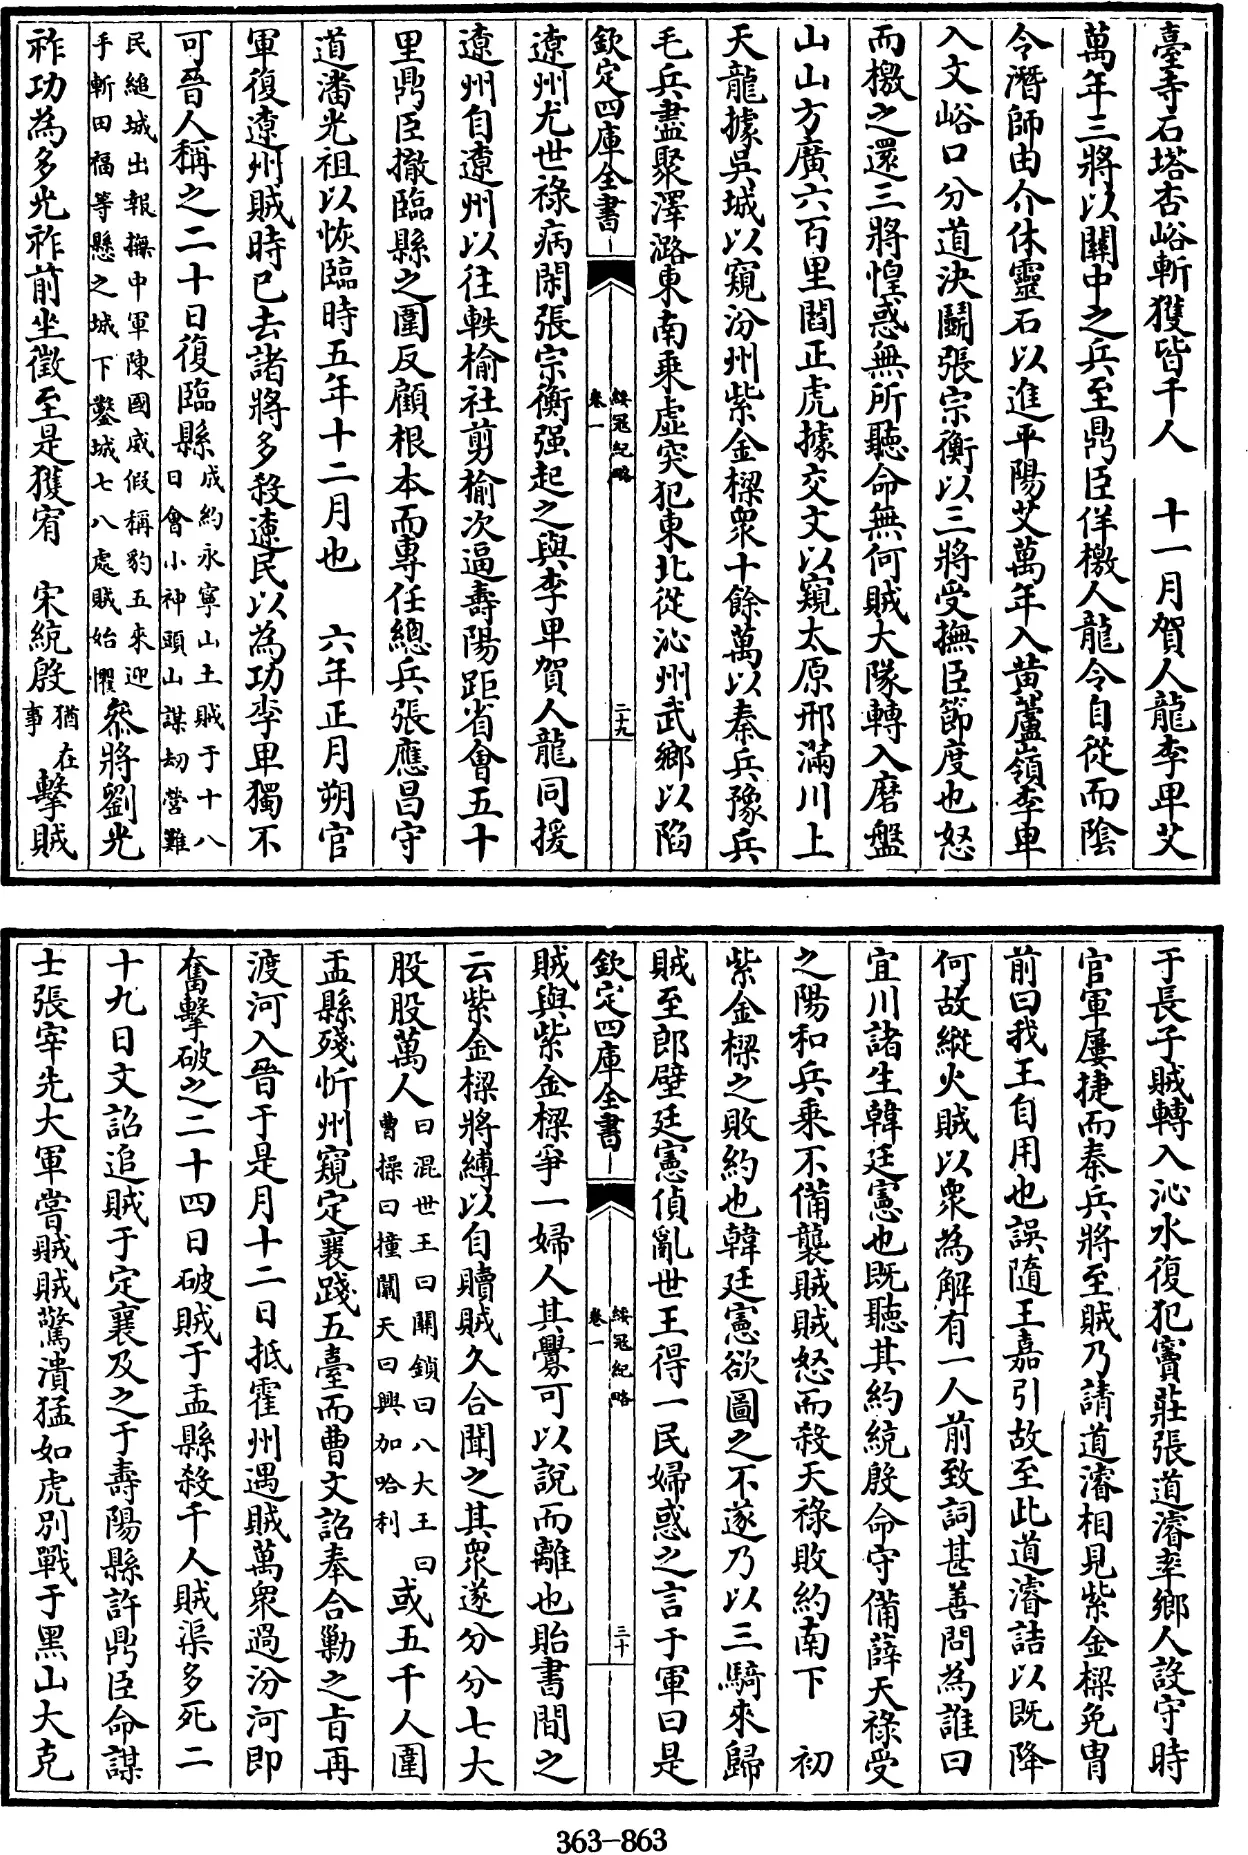 臺寺石塔杏峪斬獲皆千人　十一月賀人龍李卑艾
萬年三將以關中之兵至鼎臣佯檄人龍令自從而陰
令潛師由介休靈石以進平陽艾萬年入黄蘆嶺李卑
入文峪口分道決鬭張宗衡以三將受撫臣節度也怒
而檄之還三將惶惑無所聽命無何賊大隊轉入磨盤
山山方廣六百里閻正虎據交文以窺太原邢滿川上
天龍據吳城以窺汾州紫金樑衆十餘萬以秦兵豫兵
毛兵盡聚澤潞東南乘虛突犯東北從沁州武鄉以陷
欽定四庫全書
綏冠紀略
卷一
二十九
遼州尤世祿病閑張宗衡强起之與李卑賀人龍同援
遼州自遼州以往軼榆社剪榆次逼壽陽距省會五十
里鼎臣撤臨縣之圍反顧根本而專任總兵張應昌守
道潘光祖以恢臨時五年十二月也　六年正月朔官
軍復遼州賊時已去諸將多殺遼民以為功李卑獨不
可晉人稱之二十日復臨縣
成約永寧山土賊于十八
日會小神頭山謀刼營難
民縋城出報撫中軍陳國威假稱豹五來迎
手斬田福等懸之城下鑿城七八處賊始懼
叅將劉光
祚功為多光祚前坐徵至是獲宥　宋統殷
猶在
事
擊賊
于長子賊轉入沁水復犯竇莊張道濬率鄉人設守時
官軍屢捷而秦兵將至賊乃請道濬相見紫金樑免胄
前曰我王自用也誤隨王嘉引故至此道濬詰以既降
何故縱火賊以衆為解有一人前致詞甚善問為誰曰
宜川諸生韓廷憲也既聽其約統殷命守備薛天祿受
之陽和兵乘不備襲賊賊怒而殺天祿敗約南下　初
紫金樑之敗約也韓廷憲欲圖之不遂乃以三騎來歸
賊至郎壁廷憲偵亂世王得一民婦惑之言于軍曰是
欽定四庫全書
綏冠紀略
卷一
三十
賊與紫金樑爭一婦人其釁可以說而離也貽書間之
云紫金樑將縛以自贖賊久合聞之其衆遂分分七大
股股萬人
曰混世王曰闗鎖曰八大王曰
曹操曰撞闖天曰興加哈利
或五千人圍
盂縣殘忻州窺定襄踐五臺而曹文詔奉合勦之旨再
渡河入晉于是月十二日抵霍州遇賊萬衆過汾河即
奮擊破之二十四日破賊于盂縣殺千人賊渠多死二
十九日文詔追賊于定襄及之于壽陽縣許鼎臣命謀
士張宰先大軍嘗賊賊驚潰猛如虎別戰于黑山大克
363-863